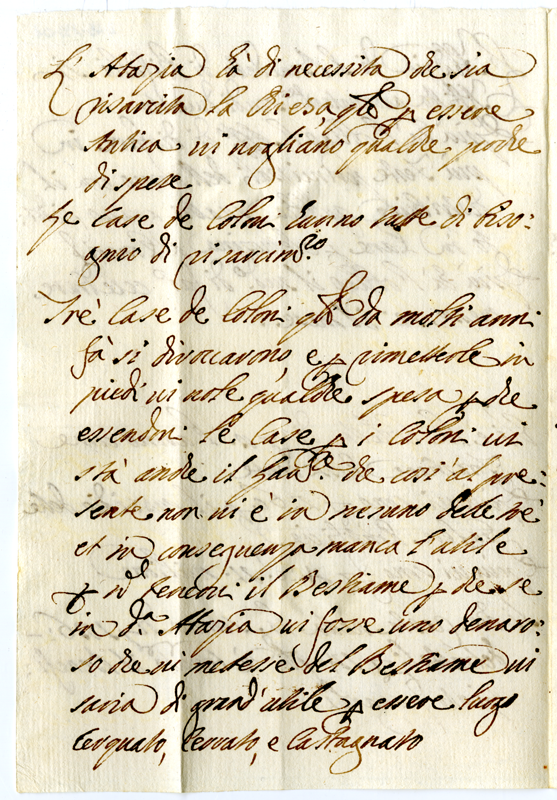 L' Abazia hà di necessità che sia
risarcita la Chiesa, qle p essere
Antica vi vogliano qualche poche
di spese
Le Case de Coloni hanno tutte di biso:
gnio di risarcimto
Trè Case de Coloni qli da molti anni
fà si diroccarono, e p rimetterle in
piedi vi vole qualche spesa p che
essendovi le Case p i Coloni vi
stà anche il che così al pre:
sente non vi è in nesuno delle trè
et in conseguenza manca l'utile
p il Bestiame p che se
in da Abazia vi fosse uno denaro:
so che vi metesse del Bestiame vi
saria di grand' utile p essere luogo
Cerquato, Cerrato, e Castagnato